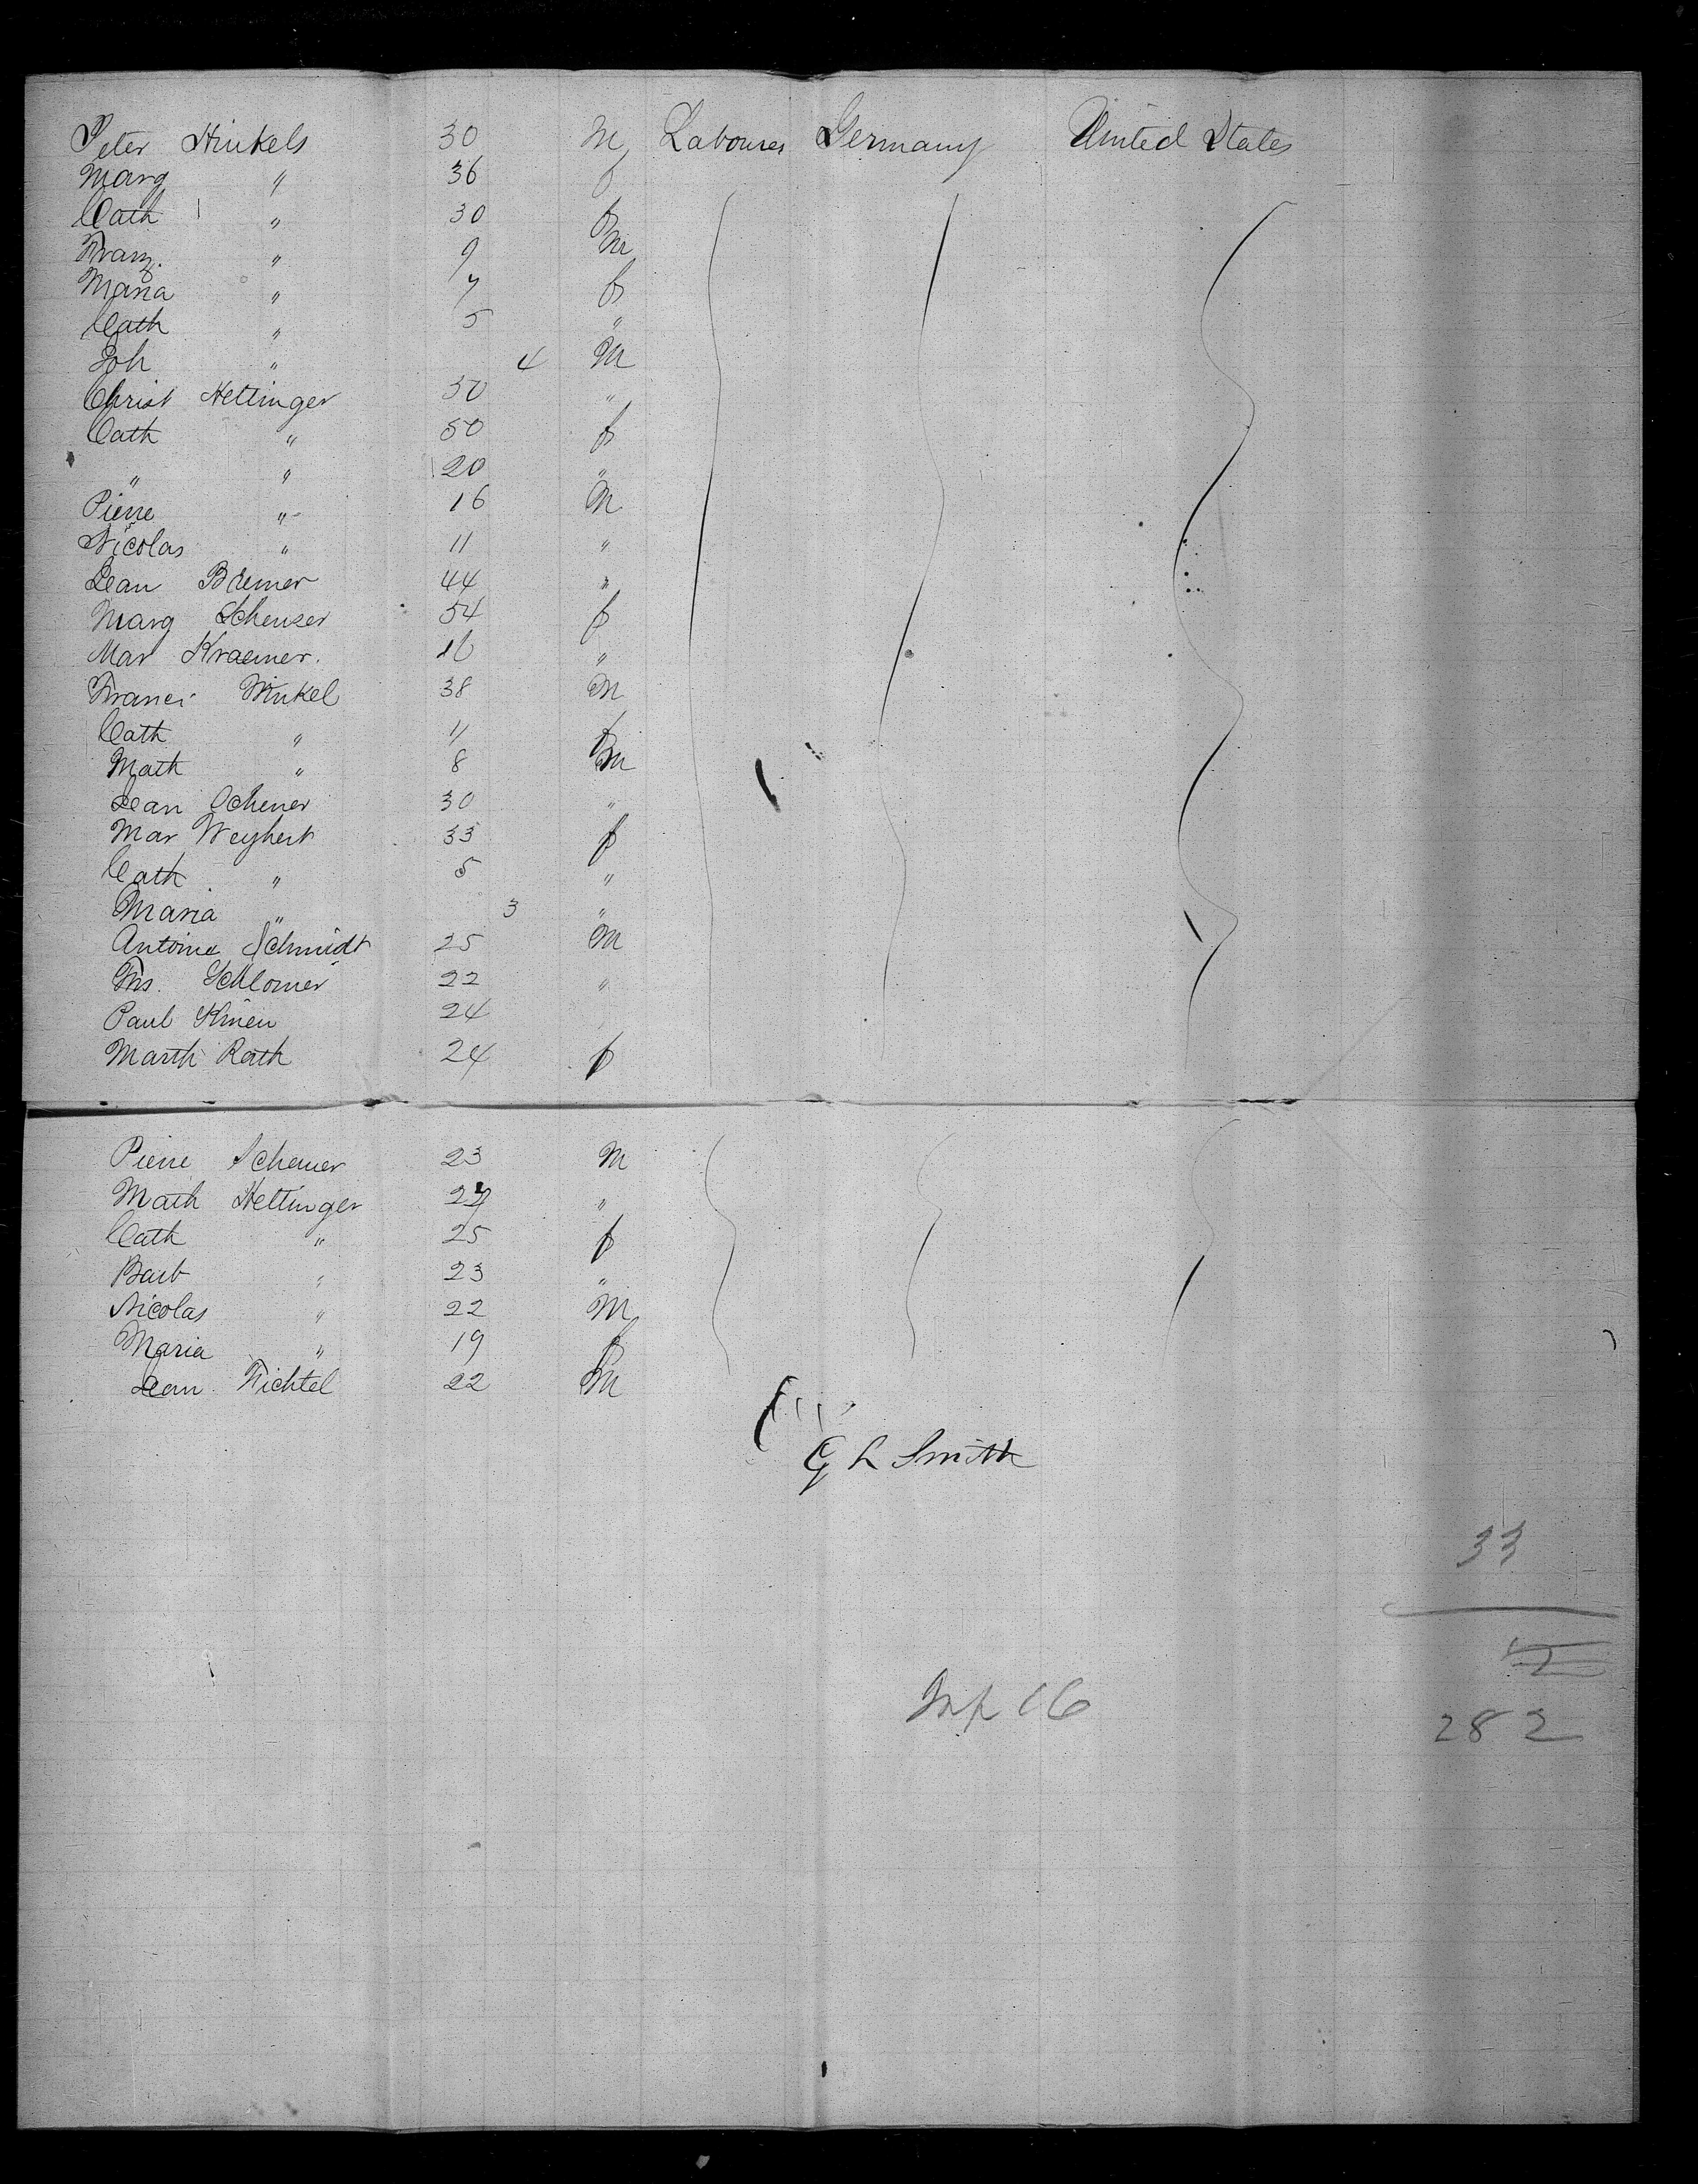 Peter Hinkels 30 M Labourer Germany United States
Marg " 36 f
Cath " 30 f
Franz. " 9 M
Maria " 7 f
Cath " 5 "
Joh " 4 M
Christ Hettinger 50 "
Cath " 50 f
" " 20 "
Pierre " 16 M
Nicolas " 11 "
Jean Bremer 44 "
Marg Scheuser 54 f
Mar Kraemer. 16 "
Franci Winkel 38 M
Cath " 11 f
Math " 8 M
Jean Schener 30 "
Mar Weyhert 33 f
Cath " 5 "
Maria " 3 "
Antoine Schmidt 25 M
Frs. Schlomer 22 "
Paul 24
Marth Rath 24 f
Pierre Scheuer 23 M
Math Hettinger 27 "
Cath " 25 f
Barb " 23 "
Nicolas " 22 M
Maria " 19 f
Jean Fichtel 22 M
G L Smith
33
16
282